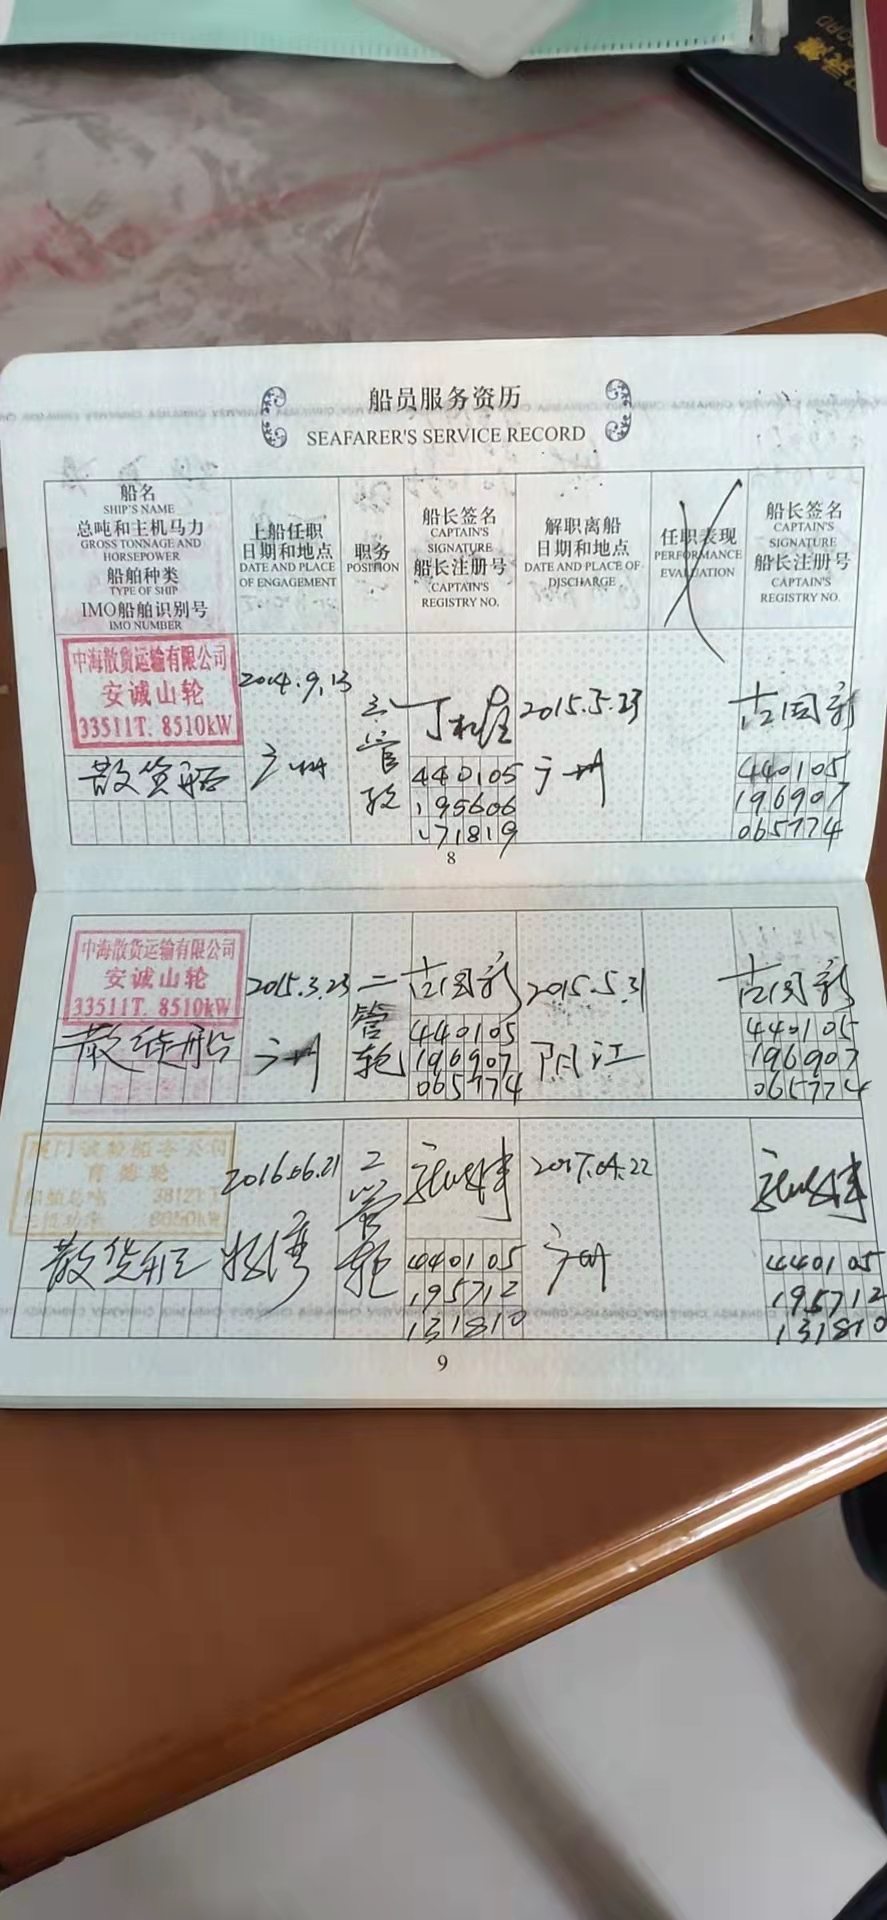 船员服务资历
SEAFARER'S SERVICE RECORD
船名
SHIP'S NAME
总吨和主机马力
GROSS TONNAGE AND
HORSEPOWER
船舶种类
TYPE OF SHIP
IMO船舶识别号
IMO NUMBER
上船任职
日期和地点
DATE AND PLACE
OF ENGAGEMENT
职务
POSITION
船长签名
CAPTAIN'S
SIGNATURE
船长注册号
CAPTAIN'S
REGISTRY NO.
解职离船
日期和地点
DATE AND PLACE OF
DISCHARGE
任职表现
PERFORMANCE
EVALUATION
船长签名
CAPTAIN'S
SIGNATURE
船长注册号
CAPTAIN'S
REGISTRY NO.
中海散货运输有限公司
安诚山轮
33511T. 8510kW
散货船
2014.9.13
广州
三管轮
440105
195606
171819
2015.3.23
广州
古国新
440105
196907
065774
8
中海散货运输有限公司
安诚山轮
33511T. 8510kW
散货船
2015.3.23
广州
二管轮
古国新
440105
196907
065774
2015.5.31
阳江
古国新
440105
196907
065774
散货船
2016.06.21
二管轮
440105
195712
131810
2017.04.22
广州
440105
195712
131810
9